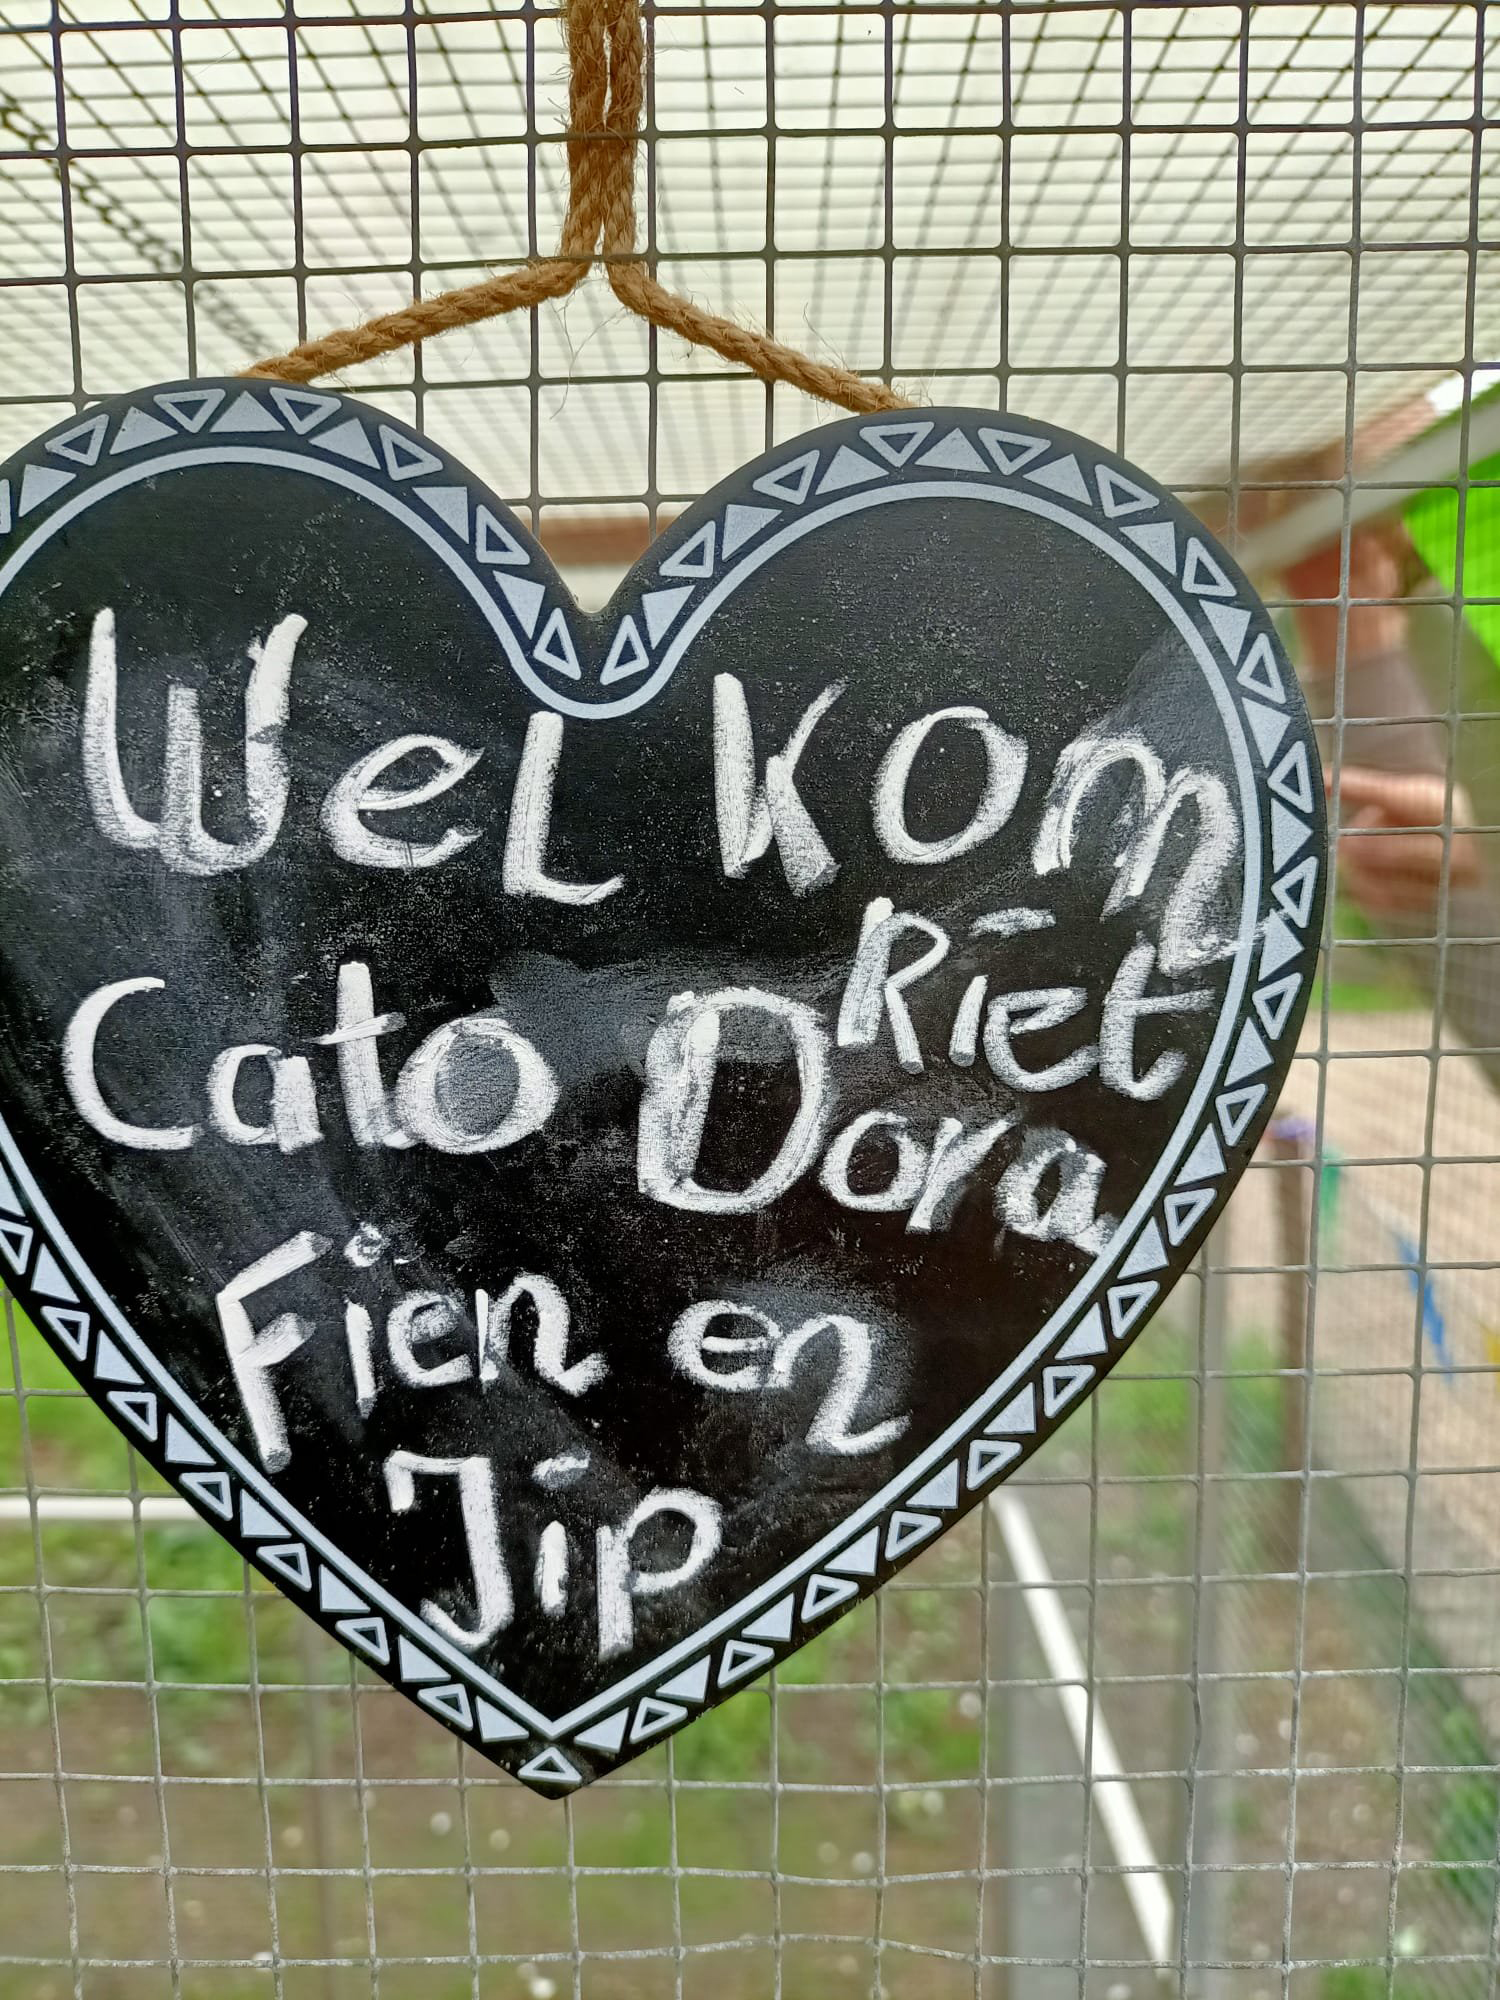 Welkom
Riet
Cato Dora
Fien en
Jip